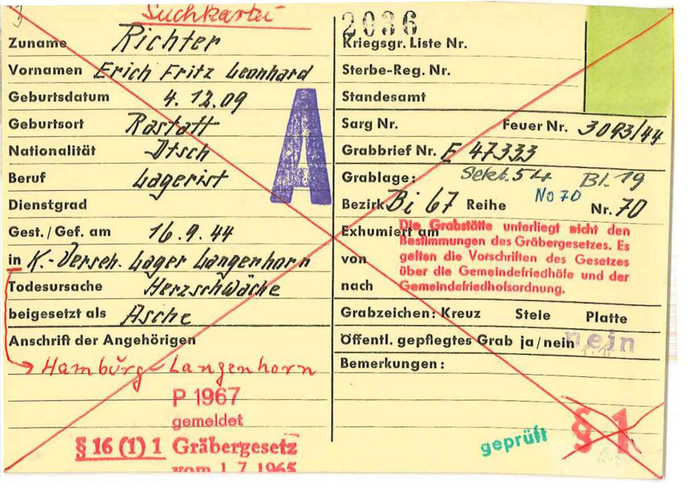 Suchkartei
2036
Zuname Richter
Vornamen Erich Fritz Leonhard
Geburtsdatum 4.12.09
Geburtsort Rastatt
Nationalität Dtsch
Beruf Lagerist
Dienstgrad
Gest./Gef. am 16.9.44
in K.-Versch. Lager Langenhorn
Todesursache Herzschwäche
beigesetzt als Asche
Anschrift der Angehörigen
Hamburg-Langenhorn
P 1967
gemeldet
§ 16 (1) 1 Gräbergesetz
vom 1.7.1965
A
Kriegsgr. Liste Nr.
Sterbe-Reg. Nr.
Standesamt
Sarg Nr. Feuer Nr. 3093/44
Grabbrief Nr. E 47333
Grablage: Sekt. 54 Bl. 19
No 70
Bezirk Bi 67 Reihe Nr. 70
Exhumiert am
von
nach
Die Grabstätte unterliegt nicht den
Bestimmungen des Gräbergesetzes. Es
gelten die Vorschriften des Gesetzes
über die Gemeindefriedhöfe und der
Gemeindefriedhofsordnung.
Grabzeichen: Kreuz Stele Platte
Öffentl. gepflegtes Grab ja/nein nein
Bemerkungen:
geprüft
§ 1